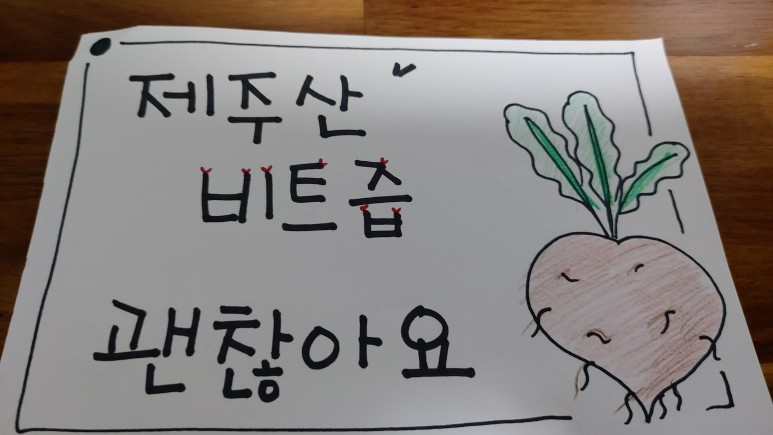 제주산
비트즙
괜찮아요